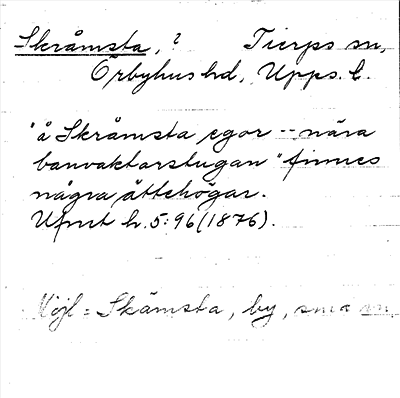 Skråmsta, ? Tierps sn,
Örbyhus hd, Upps. l.
"å Skråmsta egor -- nära
banvaktarstugan" finnes
några ättehögar.
Ufmt h. 5:96 (1876).
Möjl = Skämsta, by, sma sn